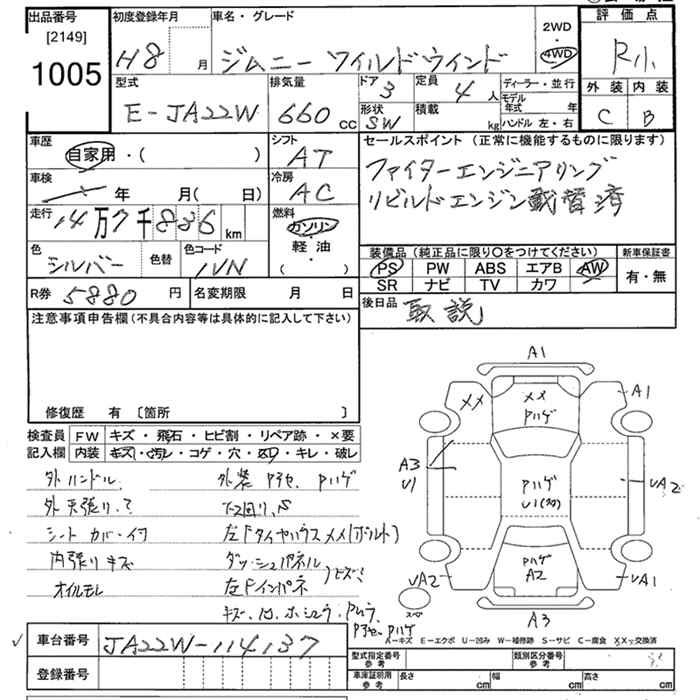 出品番号 初度登録年月 車名・グレード 2WD 評価点
[2149] 1005 H8 月 ジムニー ワイルドウインド 4WD R小
型式 排気量 ドア 3 定員 4人 ディーラー・並行 外装 内装
E-JA22W 660 CC 形状 SW 積載 kg モデル年式 年 ハンドル 左・右 C B
車歴 シフト セールスポイント (正常に機能するものに限ります)
自家用・( ) AT ファイターエンジニアリング
車検 年 月( 日) 冷房 AC リビルドエンジン載替済
走行 14万7千886km 燃料 ガソリン・軽油・( )
色 シルバー 色替 色コード 装備品 (純正品に限り○をつけてください) 新車保証書
PS PW ABS エアB AW 有・無
SR ナビ TV カワ
R券 5880 円 名変期限 月 日 後日品 取説
注意事項申告欄 (不具合内容等は具体的に記入して下さい)
修復歴 有 [箇所 ]
検査員記入欄 FW キズ・飛石・ヒビ割・リペア跡・×要
内装 キズ・汚レ・コゲ・穴・凹・キレ・破レ
外ハンドル 外装
外天張り.?
シートカバー付
内張りキズ ダッシュパネル
オイルモレ
A1
A1
メメ
メメ
Pハゲ
A3
U1
Pハゲ
UA2
Pハゲ
A2
UA2
UA1
A3
A-キズ E-エクボ U-凹み W-補修跡 S-サビ C-腐食 XX-交換済
車台番号 JA22W-114137 型式指定番号 参考 類別区分番号 参考
登録番号 車庫証明用 参考 長さ cm 幅 cm 高さ cm